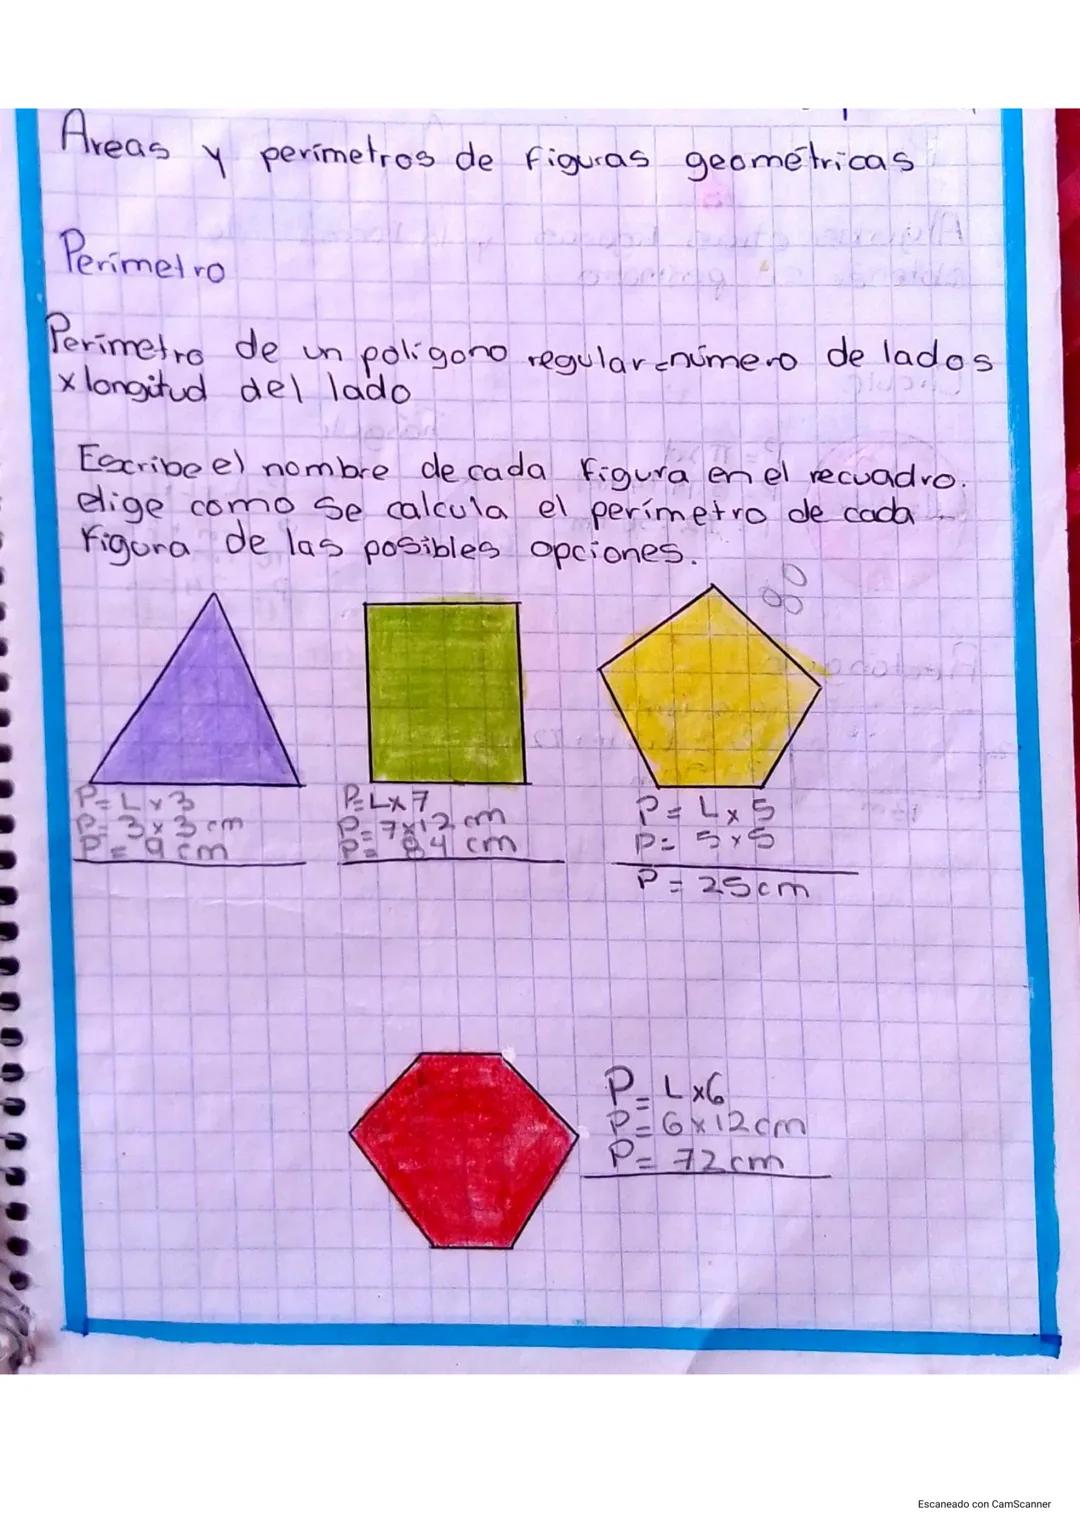 Areas y perímetros de figuras geométricas
Perímetro
Perímetro de un polígono regular = número de lados
x longitud del lado
Escribe el nombre de cada figura en el recuadro.
elige como se calcula el perímetro de cada
figura de las posibles opciones.
P= L x 3
P= 3 x 3 cm
P= 9 cm
P= L x 7
P= 7x12 cm
P= 84 cm
P= L x 5
P= 5 x 5
P= 25 cm
P= L x6
P= 6 x 12 cm
P= 72 cm
Escaneado con CamScanner